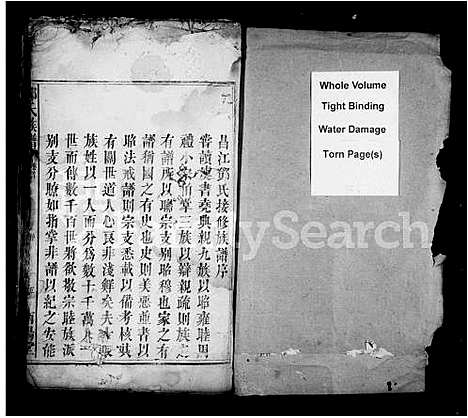 昌江鄧氏接修族譜序
書堯典親九族以昭雍睦周
禮小宗伯掌三族以辯親疏則族之
有譜所以聯宗支别昭穆也家之有
譜猶國之有史也史則美惡並書以
昭法戒譜則宗支悉載以備考核其
有關世道人心良非淺鮮矣夫
族姓以一人而分爲數十千萬人
世而傳數千百世將欲敦宗睦族派
别支分瞭如指掌非譜以紀之安能
Whole Volume
Tight Binding
Water Damage
Torn Page(s)
FamilySearch